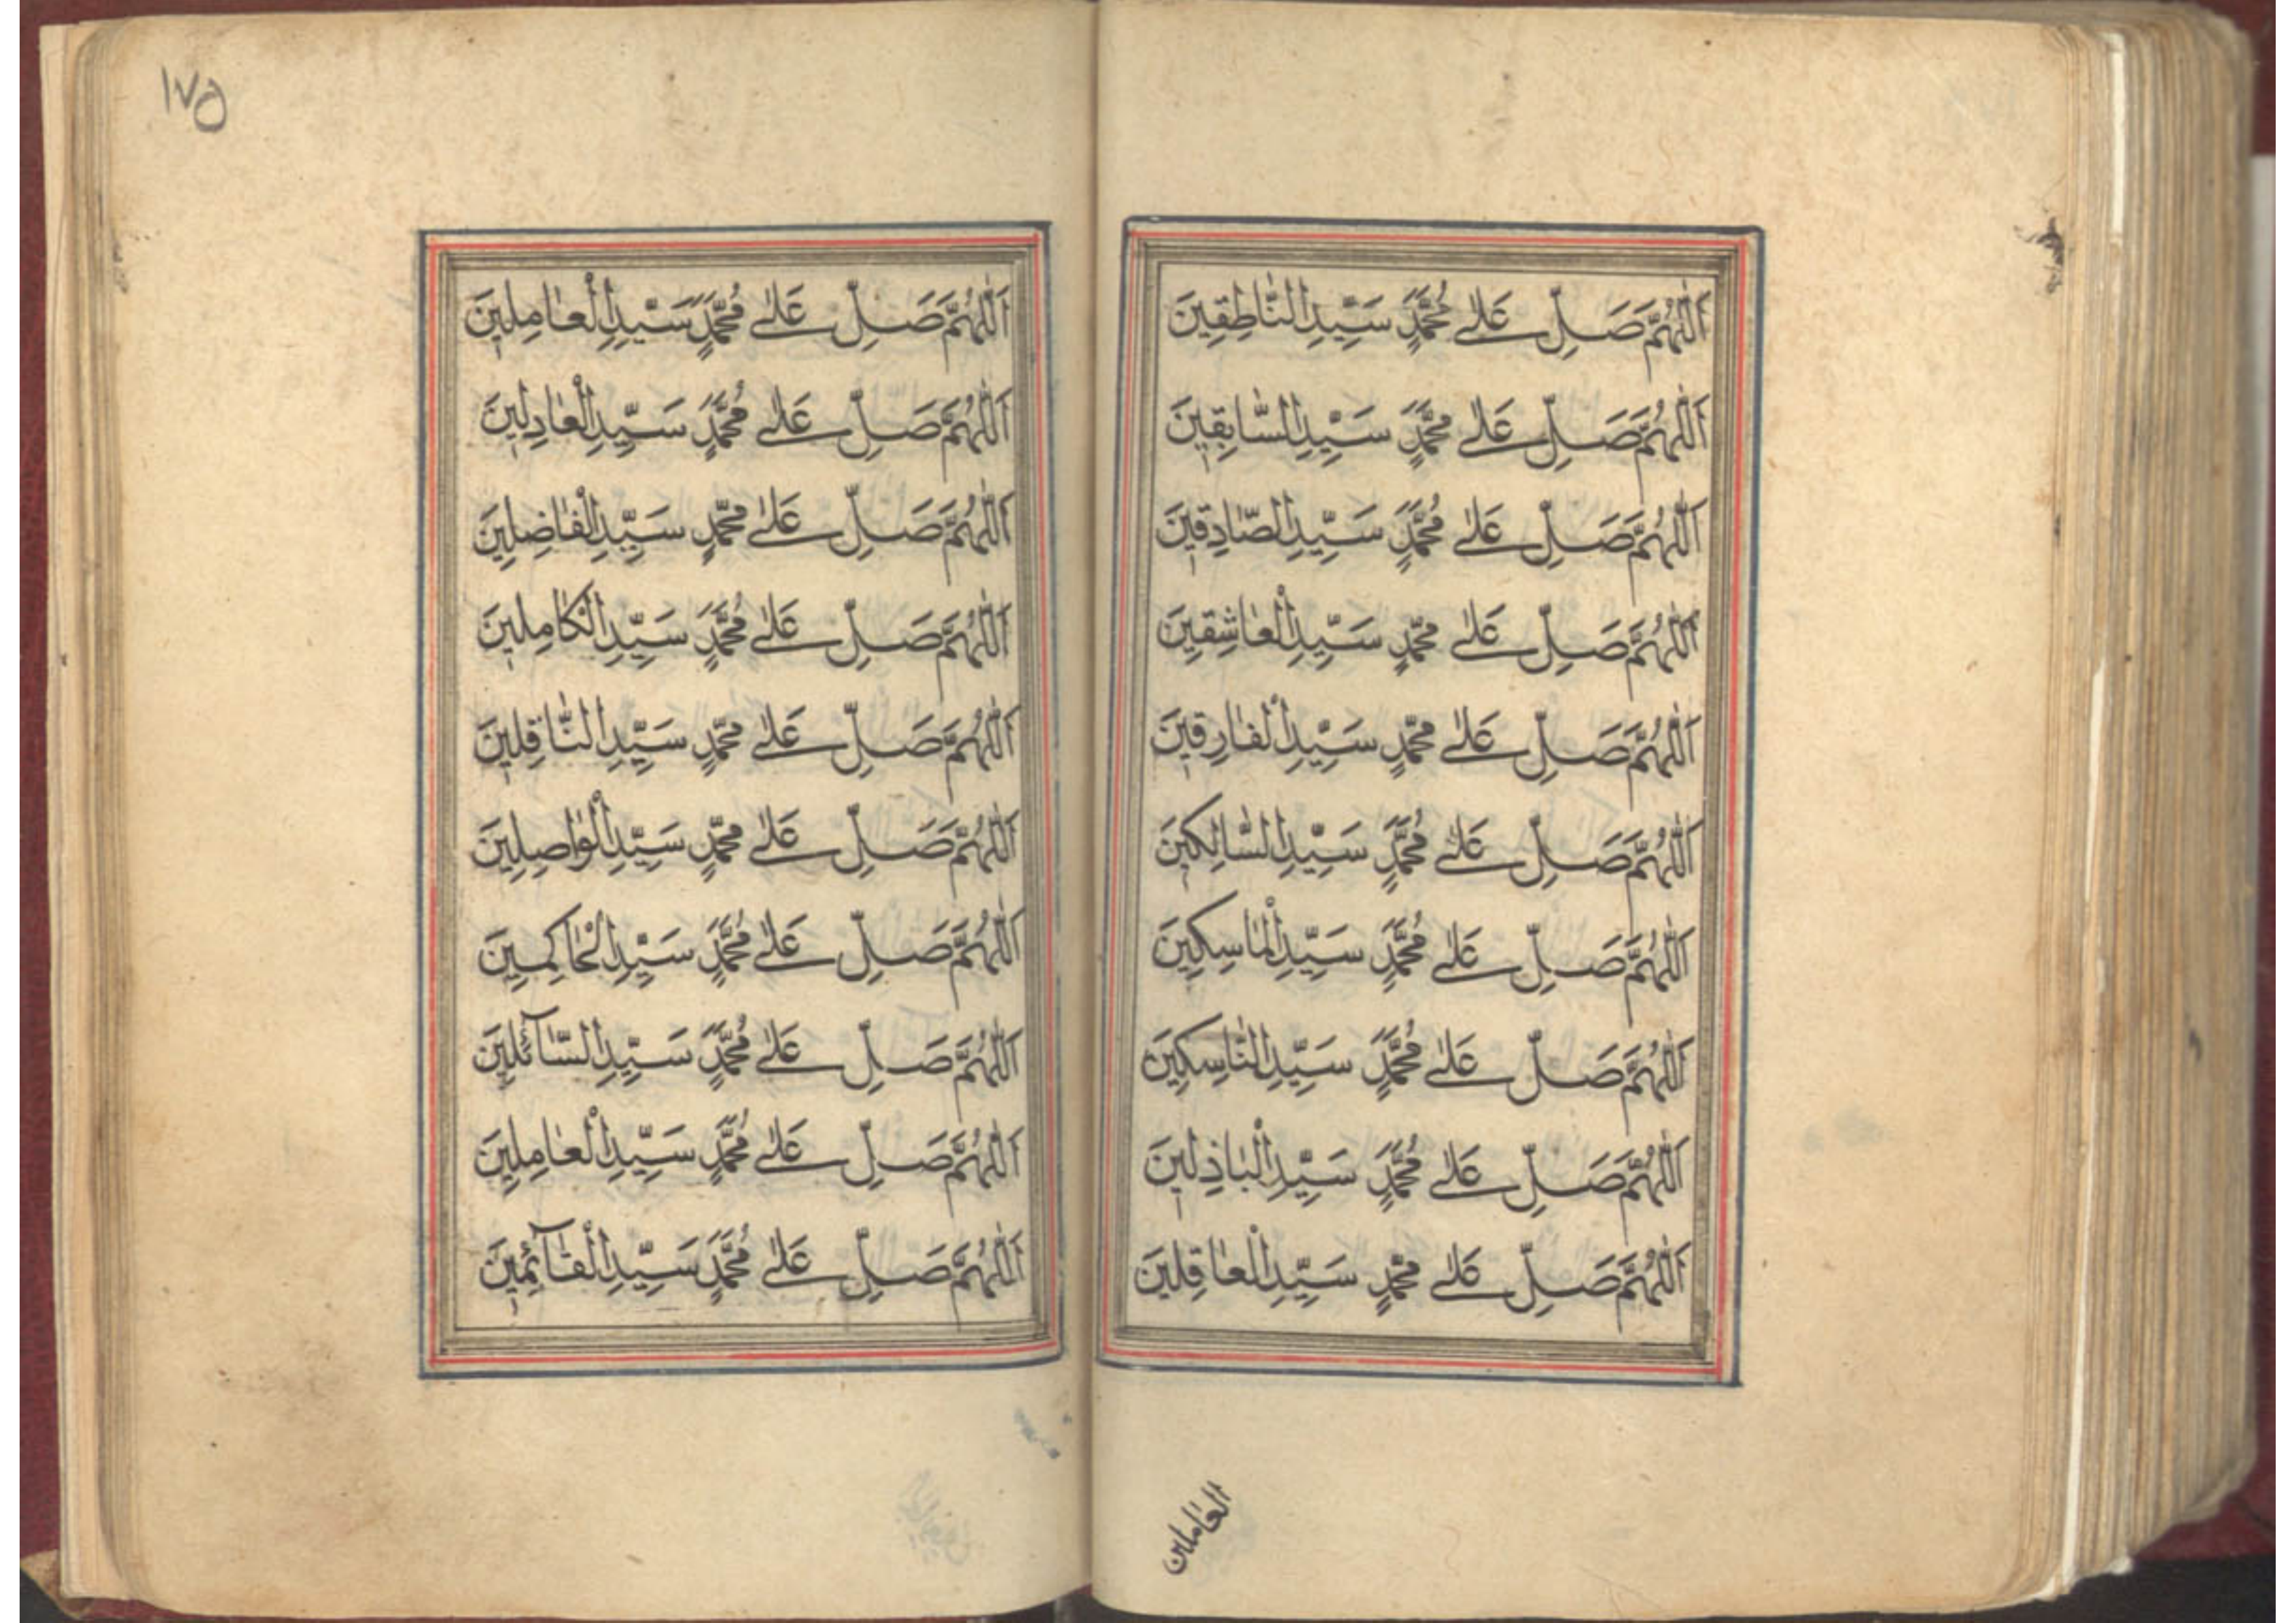 اَللّٰهُمَّ صَلِّ عَلٰى مُحَمَّدٍ سَيِّدِ النَّاطِقِينَ
اَللّٰهُمَّ صَلِّ عَلٰى مُحَمَّدٍ سَيِّدِ السَّابِقِينَ
اَللّٰهُمَّ صَلِّ عَلٰى مُحَمَّدٍ سَيِّدِ الصَّادِقِينَ
اَللّٰهُمَّ صَلِّ عَلٰى مُحَمَّدٍ سَيِّدِ الْعَاشِقِينَ
اَللّٰهُمَّ صَلِّ عَلٰى مُحَمَّدٍ سَيِّدِ الْفَارِقِينَ
اَللّٰهُمَّ صَلِّ عَلٰى مُحَمَّدٍ سَيِّدِ السَّالِكِينَ
اَللّٰهُمَّ صَلِّ عَلٰى مُحَمَّدٍ سَيِّدِ الْمَاسِكِينَ
اَللّٰهُمَّ صَلِّ عَلٰى مُحَمَّدٍ سَيِّدِ النَّاسِكِينَ
اَللّٰهُمَّ صَلِّ عَلٰى مُحَمَّدٍ سَيِّدِ الْبَاذِلِينَ
اَللّٰهُمَّ صَلِّ عَلٰى مُحَمَّدٍ سَيِّدِ الْعَاقِلِينَ
العاملين
١٧٥
اَللّٰهُمَّ صَلِّ عَلٰى مُحَمَّدٍ سَيِّدِ الْعَامِلِينَ
اَللّٰهُمَّ صَلِّ عَلٰى مُحَمَّدٍ سَيِّدِ الْعَادِلِينَ
اَللّٰهُمَّ صَلِّ عَلٰى مُحَمَّدٍ سَيِّدِ الْفَاضِلِينَ
اَللّٰهُمَّ صَلِّ عَلٰى مُحَمَّدٍ سَيِّدِ الْكَامِلِينَ
اَللّٰهُمَّ صَلِّ عَلٰى مُحَمَّدٍ سَيِّدِ النَّاقِلِينَ
اَللّٰهُمَّ صَلِّ عَلٰى مُحَمَّدٍ سَيِّدِ الْوَاصِلِينَ
اَللّٰهُمَّ صَلِّ عَلٰى مُحَمَّدٍ سَيِّدِ الْحَاكِمِينَ
اَللّٰهُمَّ صَلِّ عَلٰى مُحَمَّدٍ سَيِّدِ السَّآئِلِينَ
اَللّٰهُمَّ صَلِّ عَلٰى مُحَمَّدٍ سَيِّدِ الْعَامِلِينَ
اَللّٰهُمَّ صَلِّ عَلٰى مُحَمَّدٍ سَيِّدِ الْقَآئِمِينَ